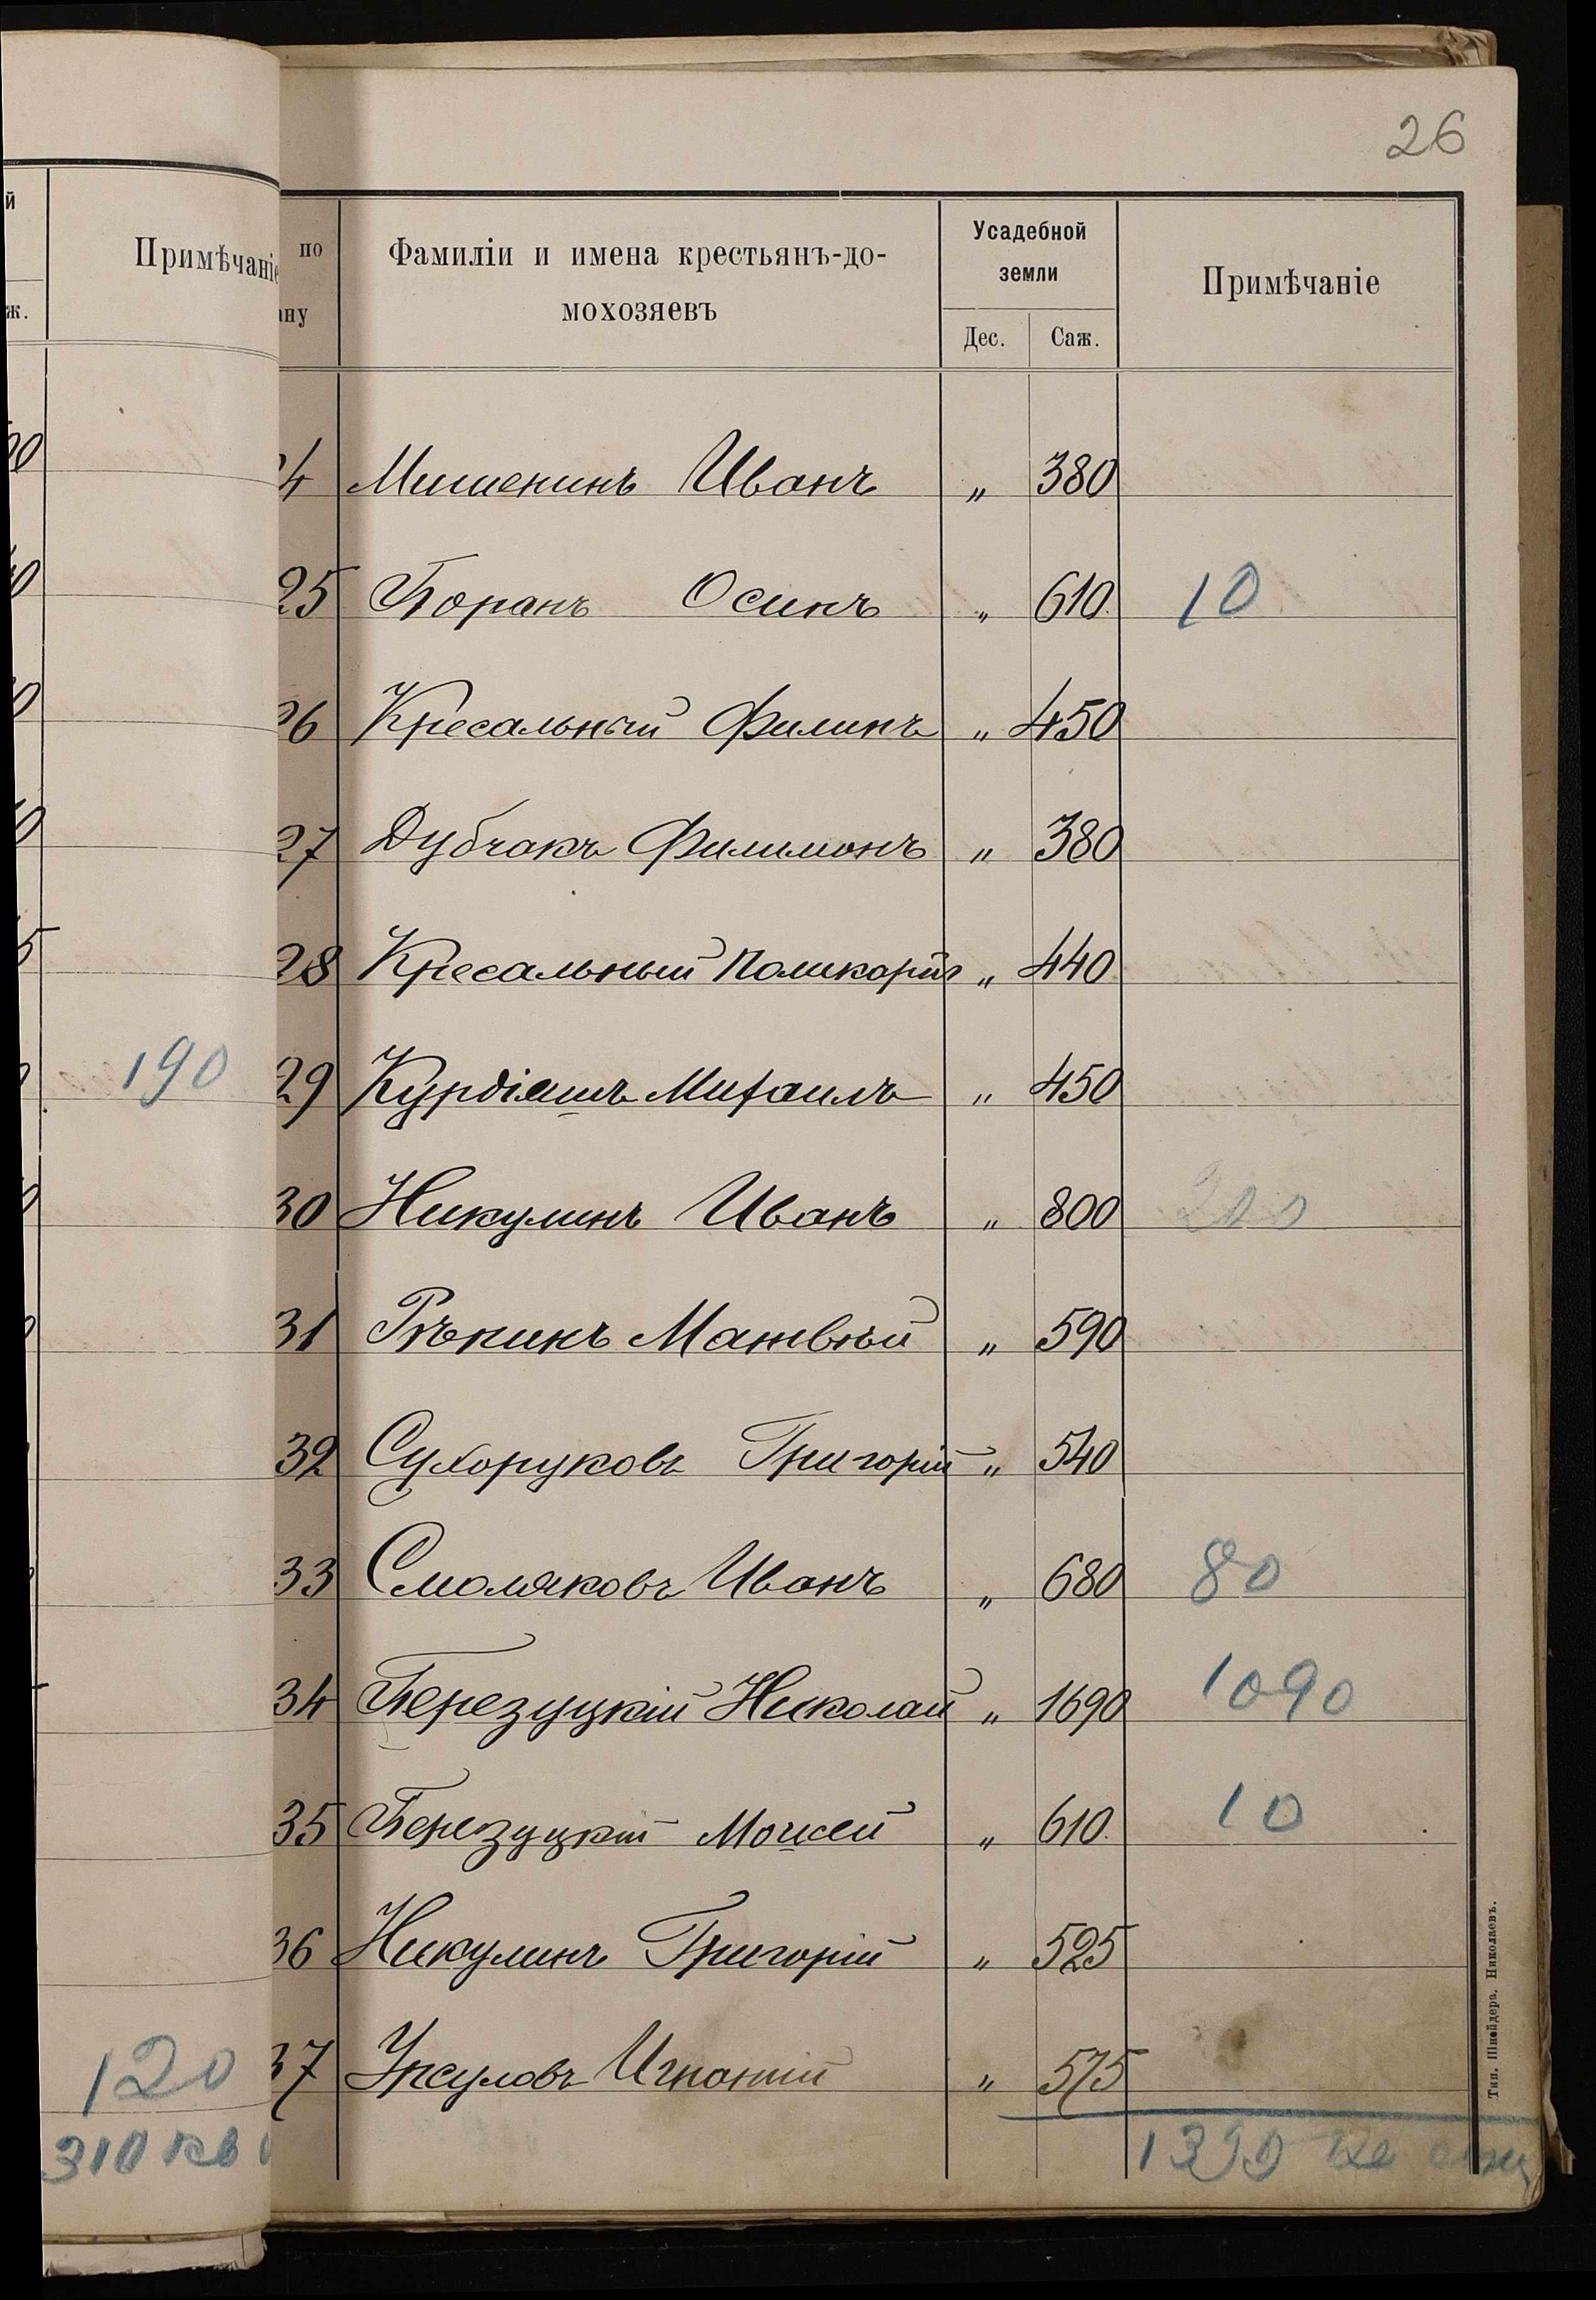 26
й
ж.
Примѣчаніе
190
120
310 кв
по
ану
Фамиліи и имена крестьянъ-до-
мохозяевъ
Усадебной
земли
Дес. Саж.
Примѣчаніе
4 Мишенинъ Иванъ „ 380
25 Боранъ Осипъ „ 610 10
26 Кресальный Филипъ „ 450
27 Дубчакъ Филимонъ „ 380
28 Кресальный Поликарпъ „ 440
29 Курдіяшъ Михаилъ „ 450
30 Никулинъ Иванъ „ 800 200
31 Рѣпинъ Матвѣй „ 590
32 Сухоруковъ Григорій „ 540
33 Смоляковъ Иванъ „ 680 80
34 Березуцкій Николай „ 1690 1090
35 Березуцкій Моисей „ 610 10
36 Никулинъ Григорій „ 525
37 Урсуловъ Игнатій „ 575
1390 кв саж
Тип. Шнейдера, Николаевъ.